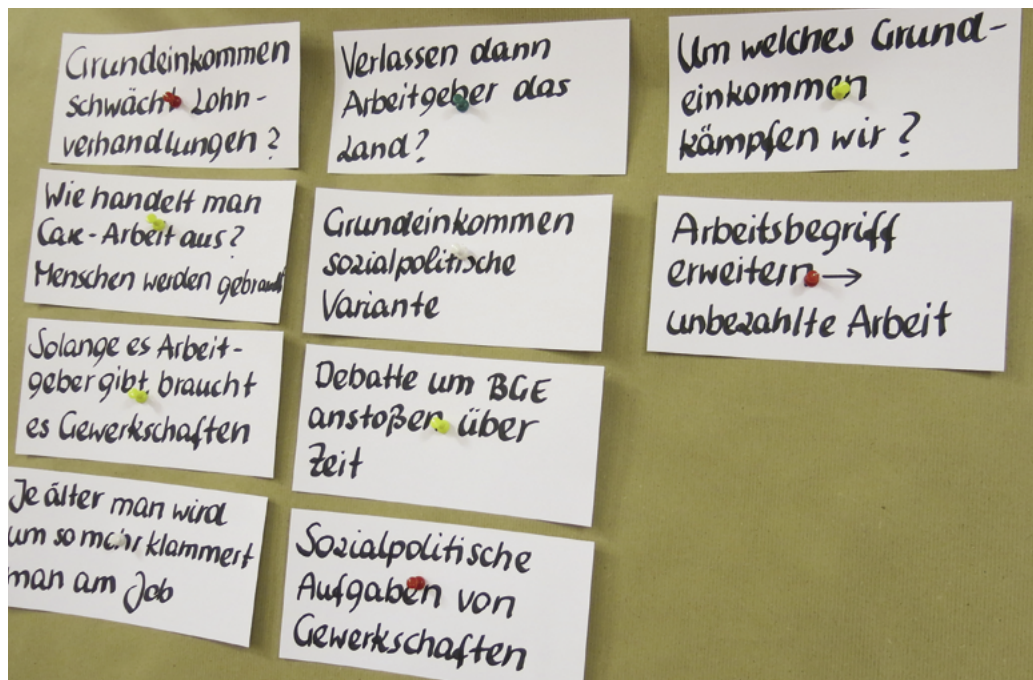 Grundeinkommen
schwächt Lohn-
verhandlungen?
Wie handelt man
Care-Arbeit aus?
Menschen werden gebraucht
Solange es Arbeit-
geber gibt, braucht
es Gewerkschaften
Je älter man wird
um so mehr klammert
man am Job
Verlassen dann
Arbeitgeber das
Land?
Grundeinkommen
sozialpolitische
Variante
Debatte um BGE
anstoßen über
Zeit
Sozialpolitische
Aufgaben von
Gewerkschaften
Um welches Grund-
einkommen
kämpfen wir?
Arbeitsbegriff
erweitern →
unbezahlte Arbeit